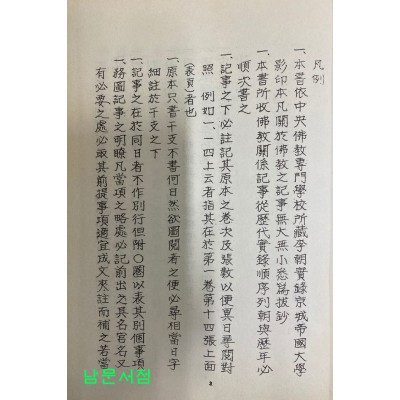 凡例
一、本書依中央佛敎專門學校所藏李朝實錄京城帝國大學
影印本凡關於佛敎之記事無大無小悉爲拔鈔
一、本書所收佛敎關係記事從歷代實錄順序列朝與歷年必
順次書之
一、記事之下必註記其原本之卷次及張數以便異日尋閱對
照 例如一、一四上云者指其在於第一卷第十四張上面
(表頁)者也
一、原本只書干支不書何日然欲圖閱者之便必尋相當日字
細註於干支之下
一、記事之在於同日者不作別行但附○圈以表其別個事項
一、務圖記事之明瞭凡當項之略處必記前出之其名官名又
有必要之處必取其前提事項適宜成文來註而補之若當
남문서점